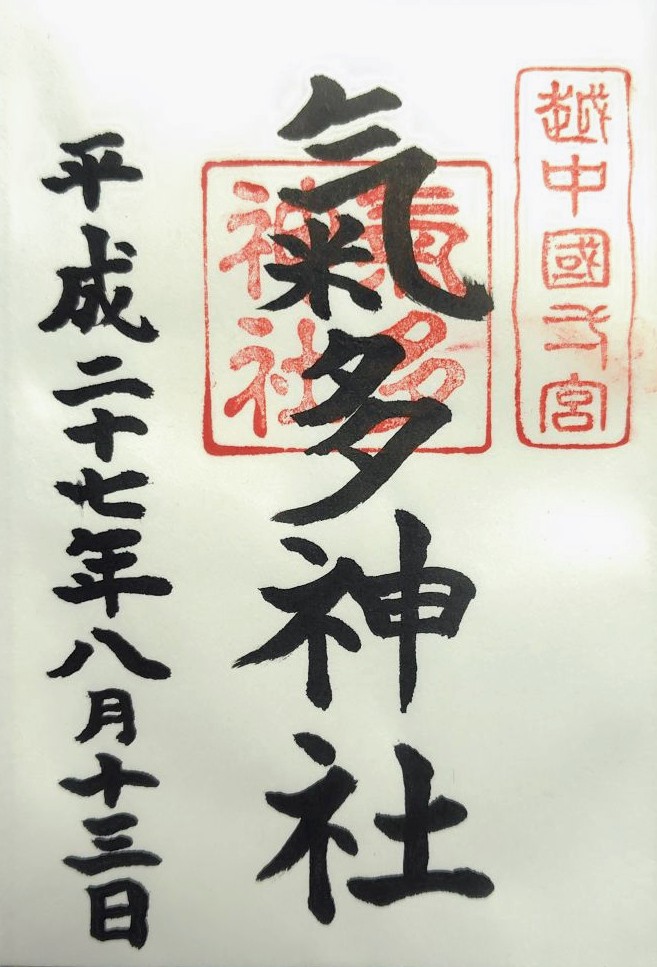 越中國一宮
氣多神社
氣多
神社
平成二十七年八月十三日